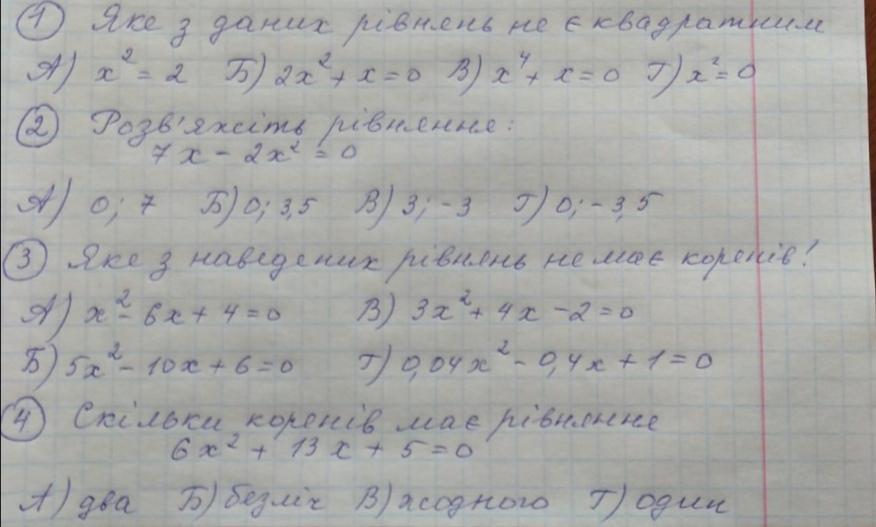 1 Яке з даних рівнянь не є квадратним
А) x² = 2 Б) 2x² + x = 0 В) x⁴ + x = 0 Г) x² = 0
2 Розв'яжіть рівняння:
7x - 2x² = 0
А) 0; 7 Б) 0; 3,5 В) 3; -3 Г) 0; -3,5
3 Яке з наведених рівнянь не має коренів!
А) x² - 6x + 4 = 0 В) 3x² + 4x - 2 = 0
Б) 5x² - 10x + 6 = 0 Г) 0,04x² - 0,4x + 1 = 0
4 Скільки коренів має рівняння
6x² + 13x + 5 = 0
А) два Б) безліч В) жодного Г) один